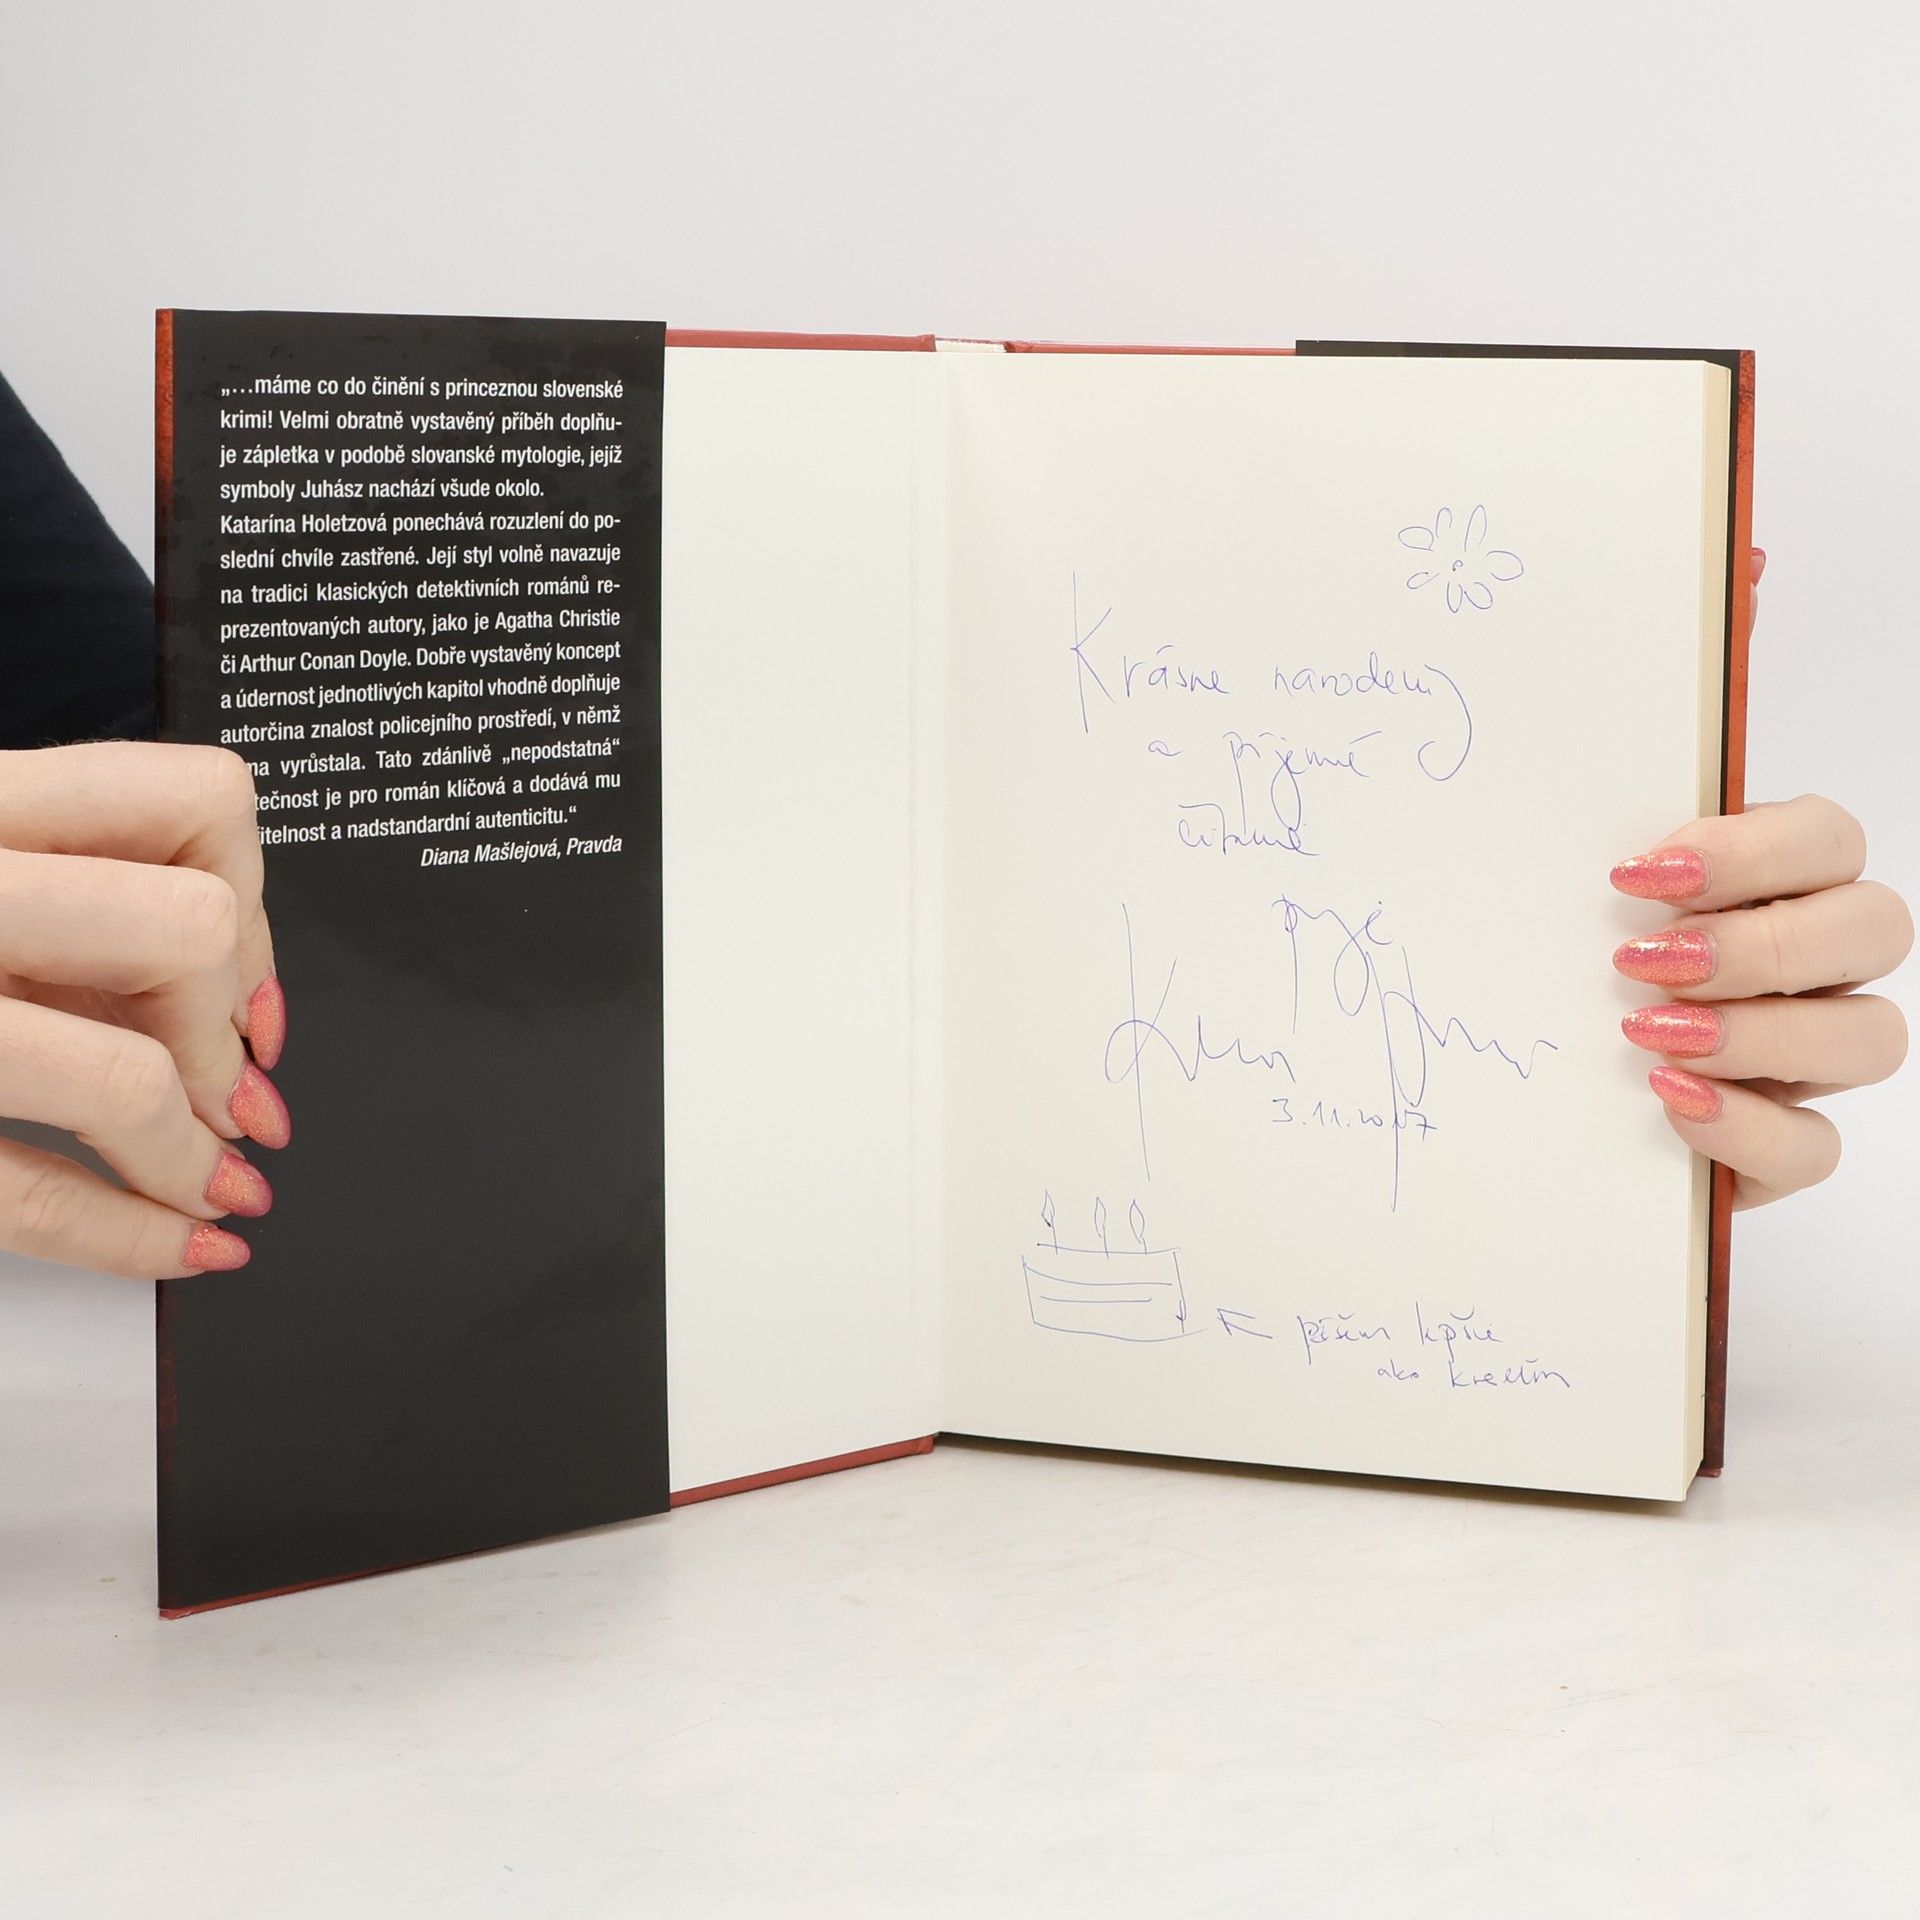 „…máme co do činění s princeznou slovenské
krimi! Velmi obratně vystavěný příběh doplňu-
je zápletka v podobě slovanské mytologie, jejíž
symboly Juhász nachází všude okolo.
Katarína Holetzová ponechává rozuzlení do po-
slední chvíle zastřené. Její styl volně navazuje
na tradici klasických detektivních románů re-
prezentovaných autory, jako je Agatha Christie
či Arthur Conan Doyle. Dobře vystavěný koncept
a údernost jednotlivých kapitol vhodně doplňuje
autorčina znalost policejního prostředí, v němž
vyrůstala. Tato zdánlivě „nepodstatná“
je pro román klíčová a dodává mu
a nadstandardní autenticitu.“
Diana Mašlejová, Pravda
Krásne narodeniny
a príjemné
čítanie
praje
3.11.2017
píšem lepšie
ako kreslím